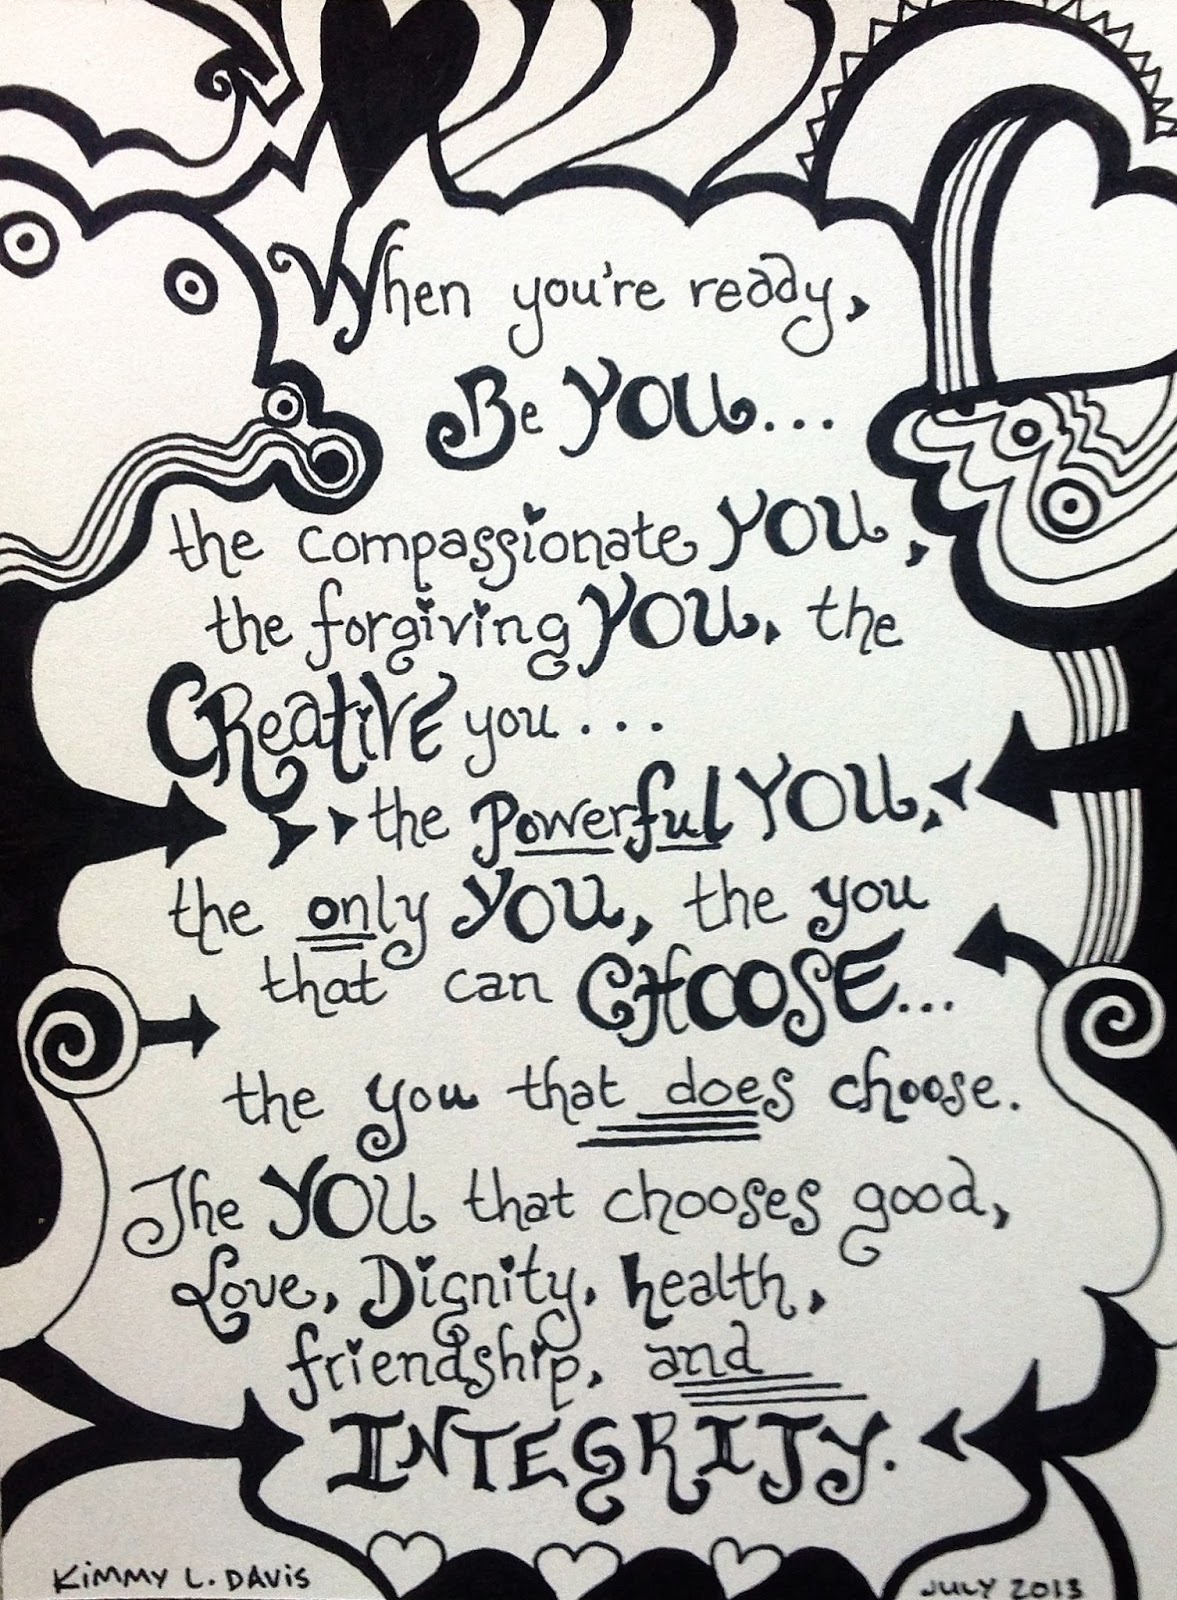 When you're ready,
Be YOU...
the compassionate YOU,
the forgiving YOU, the
CReatiVE you...
the Powerful YOU,
the only YOU, the you
that can CHOOSE...
the you that does choose.
The YOU that chooses good,
Love, Dignity, health,
friendship, and
INTEGRITY.
KiMMY L. DAViS
JULY 2013